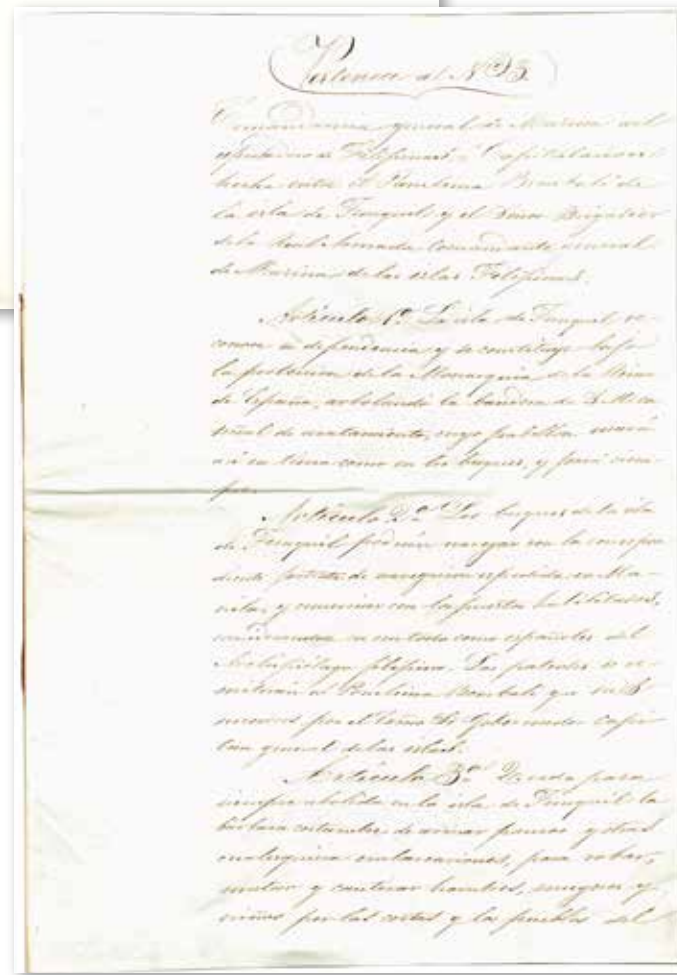 Pertenece al Nº 3
Comandancia general de Marina del
apostadero de Filipinas. Capitulaciones
hecha entre el Panelima Bombali de
la isla de Tunquil y el Señor Brigadier
de la Real Armada Comandante general
de Marina de las islas Filipinas.
Artículo 1º La isla de Tunquil re-
conoce dependencia y se constituye bajo
la proteccion de la Monarquia de la Reina
de España, arbolando la bandera de S. M. en
señal de acatamiento, cuyo pabellon usará
así en tierra como en los buques, y para siem-
pre.
Artículo 2º Los buques de la isla
de Tunquil podrán navegar con la correspon-
diente patente de navegacion espedida en Ma-
nila, y comerciar con los puertos habilitados,
considerandose en un todo como españoles del
Archipiélago filipino. Las patentes se re-
mitirán al Panelima Bombali
por el Señor Gobernador Capi-
tan general de las islas.
Artículo 3º Queda para
siempre abolida en la isla de Tunquil la
barbara costumbre de armar pancos y otras
cualesquiera embarcaciones, para robar,
matar y cautivar hombres, mugeres y
niños por las costas y los pueblos del